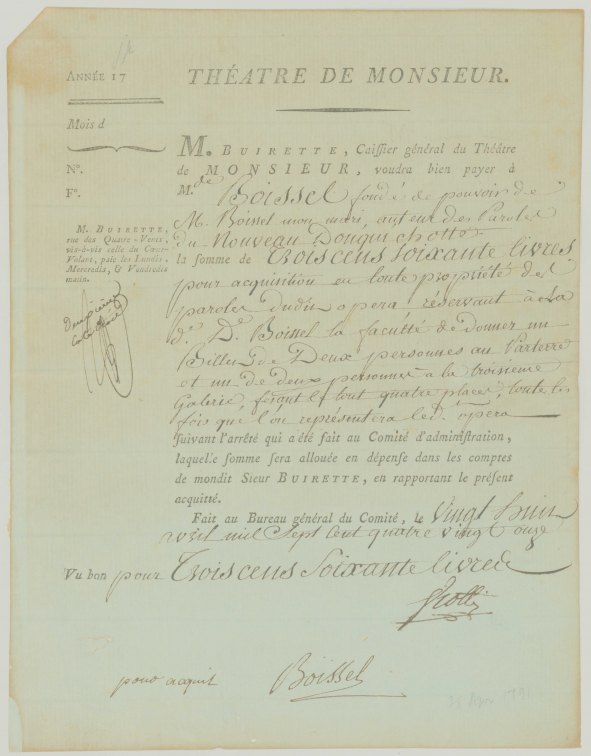 ANNÉE 17
THÉATRE DE MONSIEUR.
Mois d
N°.
F°.
M. BUIRETTE,
rue des Quatre-Vents,
vis-à-vis celle du Cœur-
Volant, paie les Lundis,
Mercredis, & Vendredis
matin.
M. BUIRETTE, Caissier général du Théâtre
de MONSIEUR, voudra bien payer à
M.de Boissel fondé de pouvoir de
M. Boissel mon mari, auteur des Paroles
du Nouveau Donquichotte
la somme de Trois cens soixante livres
pour acquisition en toute propriété des
paroles dudit opera, réservant à la
de. De. Boissel la faculté de donner un
Billet de Deux personnes au Parterre
et un de deux personnes à la troisieme
Galerie, feront le tout quatre places, toute les
fois que l'on représentera led. opera
suivant l'arrêté qui a été fait au Comité d'administration,
laquelle somme sera allouée en dépense dans les comptes
de mondit Sieur BUIRETTE, en rapportant le présent
acquitté.
Fait au Bureau général du Comité, le Vingt huit
avril mil Sept cent quatre vingt onze
Vu bon pour Trois cens Soixante livres
pour acquit Boissel